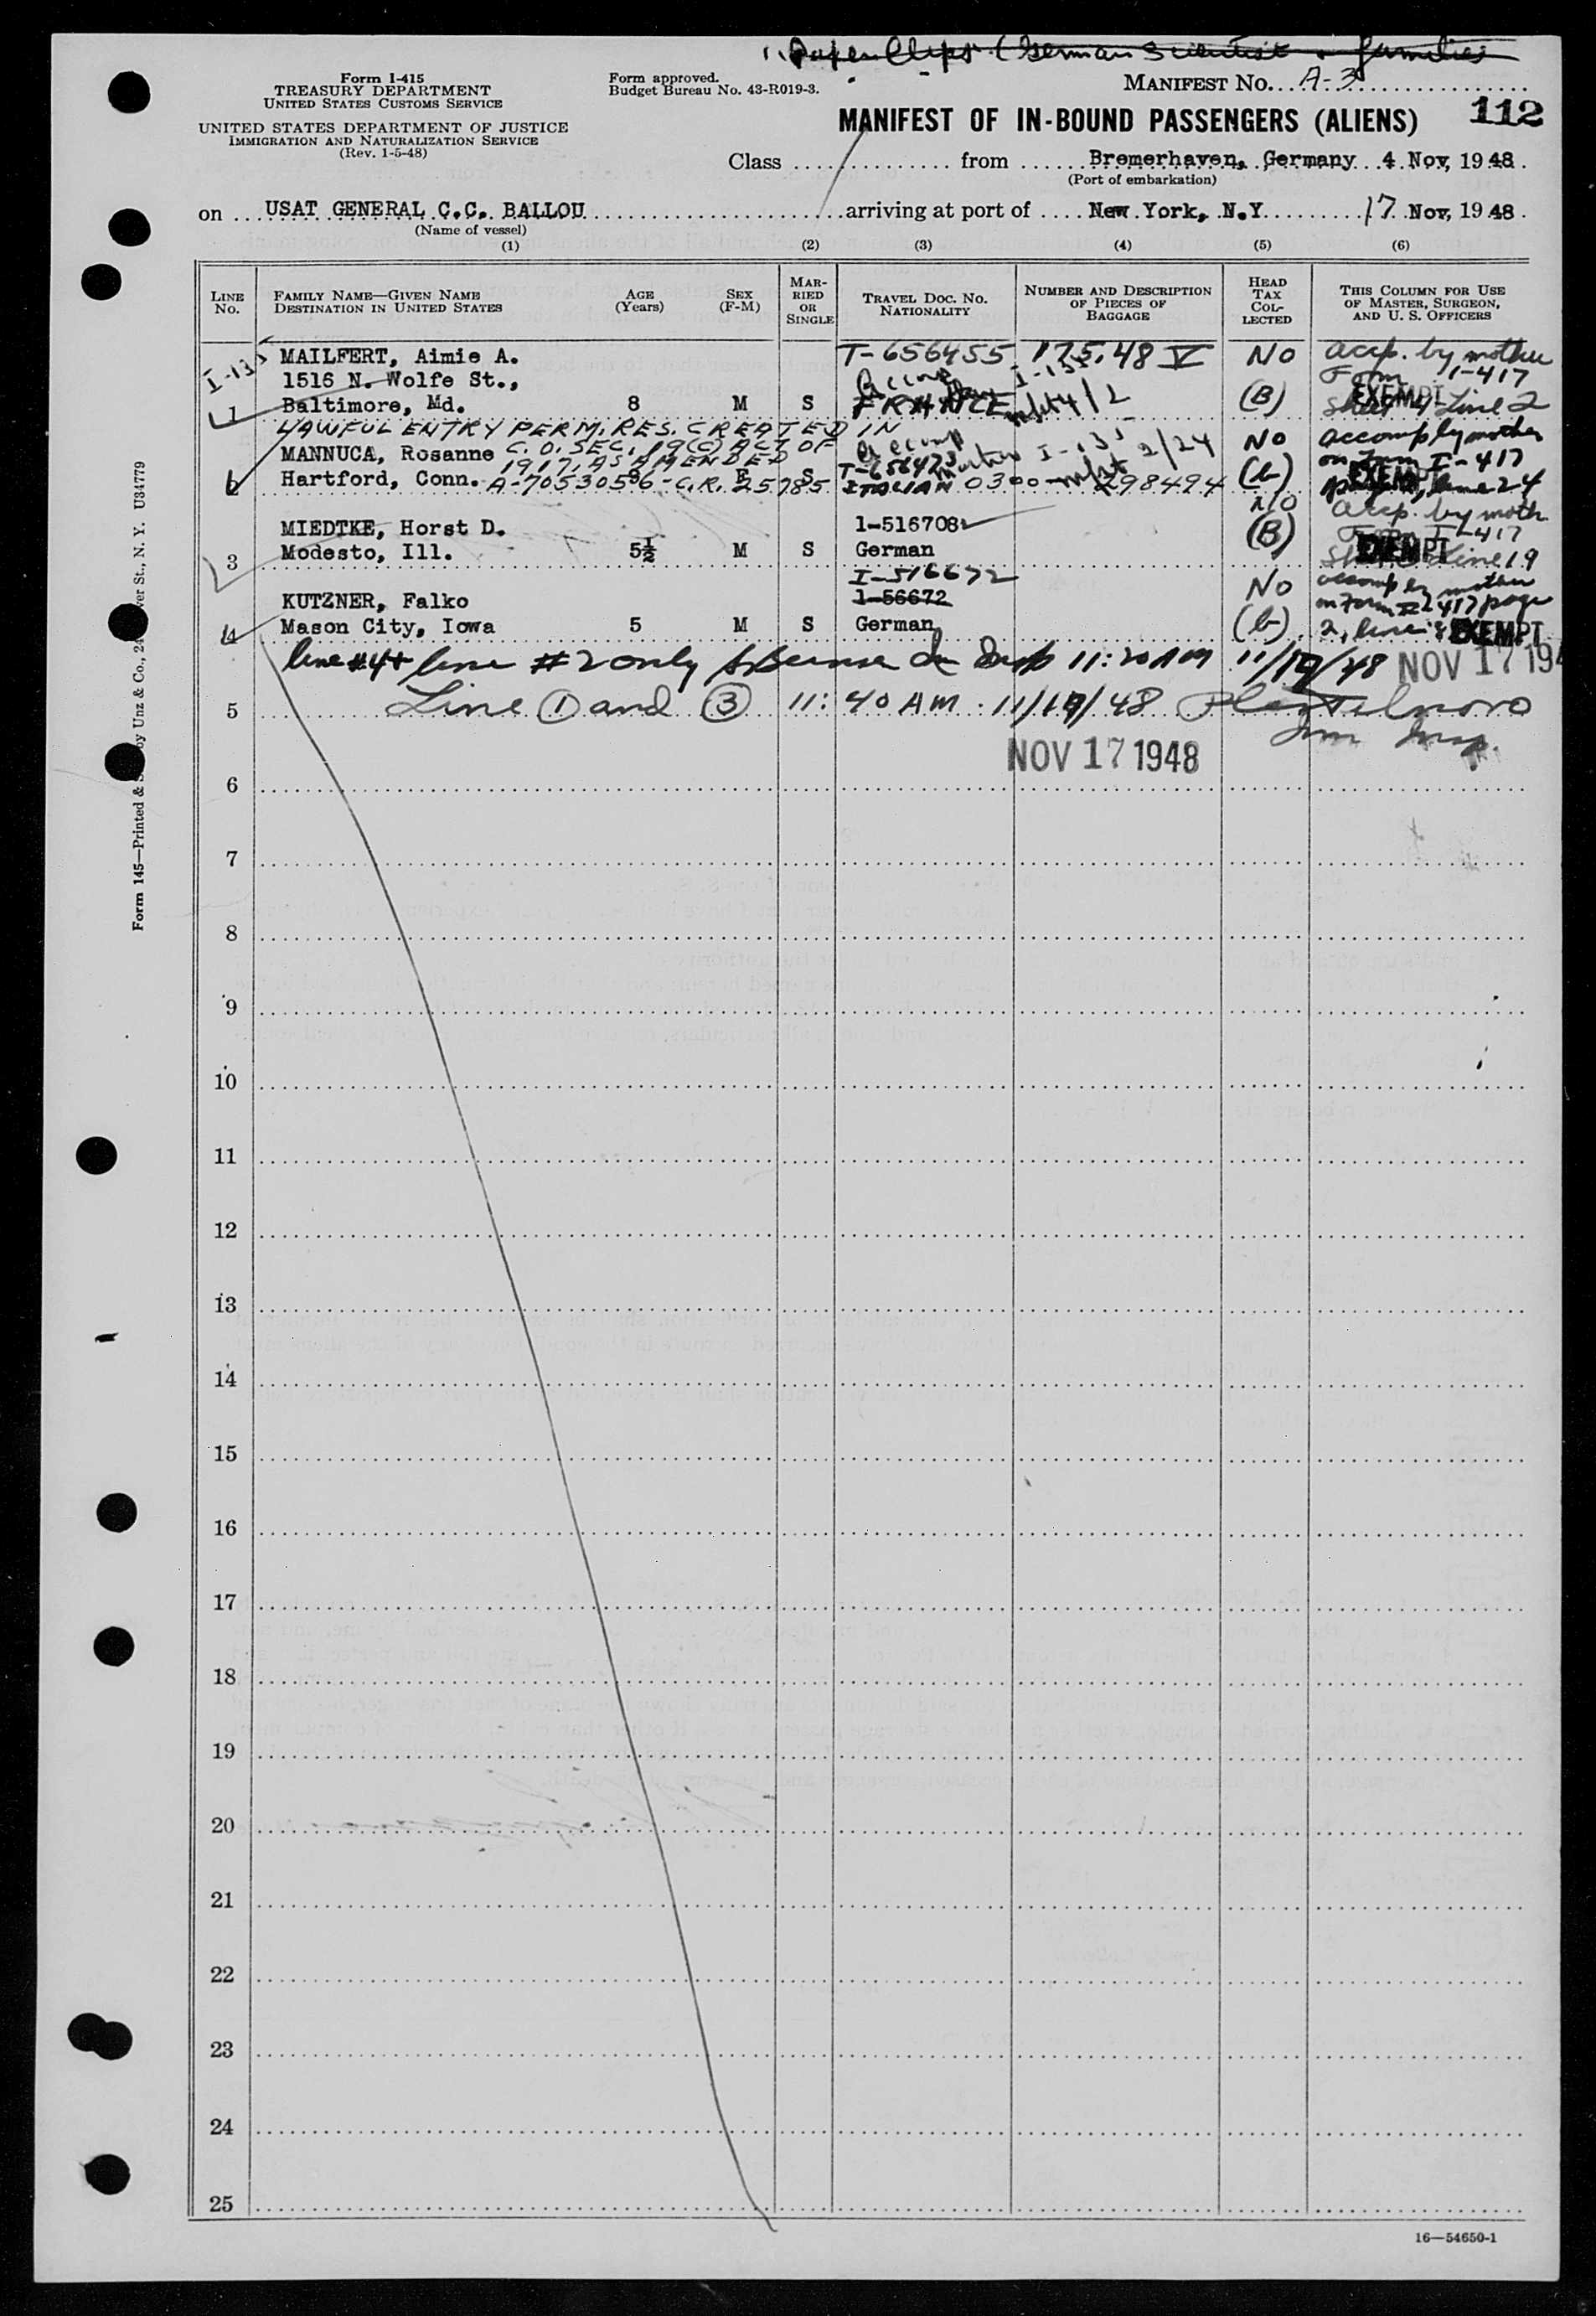 "Paper Clips" (German Scientist & families
Form I-415
TREASURY DEPARTMENT
UNITED STATES CUSTOMS SERVICE
UNITED STATES DEPARTMENT OF JUSTICE
IMMIGRATION AND NATURALIZATION SERVICE
(Rev. 1-5-48)
Form approved.
Budget Bureau No. 43-R019-3.
MANIFEST NO. A-3
112
MANIFEST OF IN-BOUND PASSENGERS (ALIENS)
Class from Bremerhaven, Germany 4 Nov, 1948
(Port of embarkation)
on USAT GENERAL C.C. BALLOU arriving at port of New York, N.Y. 17 Nov, 1948
(Name of vessel)
(1) (2) (3) (4) (5) (6)
LINE NO.
FAMILY NAME—GIVEN NAME
DESTINATION IN UNITED STATES
AGE
(Years)
SEX
(F-M)
MARRIED OR SINGLE
TRAVEL DOC. NO.
NATIONALITY
NUMBER AND DESCRIPTION OF PIECES OF BAGGAGE
HEAD TAX COLLECTED
THIS COLUMN FOR USE OF MASTER, SURGEON, AND U. S. OFFICERS
I-133
MAILFERT, Aimie A. T-656455 175.48 V NO accp. by mother
1516 N. Wolfe St., I-133 Form I-417
1 Baltimore, Md. 8 M S FRANCE 4/2 (B) EXEMPT Sheet 4 Line 2
LAWFUL ENTRY PERM. RES. CREATED IN
C.O. SEC. 19(C) ACT OF
1917, AS AMENDED
A-7053056-C.R. 25785
MANNUCA, Rosanne T-656473 I-133 2/24 NO accomp by mother
on Form I-417
2 Hartford, Conn. 5 F S ITALIAN 0300- 298494 (b) EXEMPT line 24
MIEDTKE, Horst D. 1-516708 NO accp. by moth
3 Modesto, Ill. 5½ M S German (B) EXEMPT Line 19
I-516672
KUTZNER, Falko 1-56672 No accomp by mother
on Form I-417 page
4 Mason City, Iowa 5 M S German (b) 2, line EXEMPT
line #4 + line #2 only 11:20 AM 11/17/48 NOV 17 194
5 Line 1 and 3 11:40 AM 11/17/48
Imm Insp.
NOV 17 1948
6
7
8
9
10
11
12
13
14
15
16
17
18
19
20
21
22
23
24
25
16—54650-1
Form 145—Printed & by Unz & Co., 24 ver St., N. Y. U34779